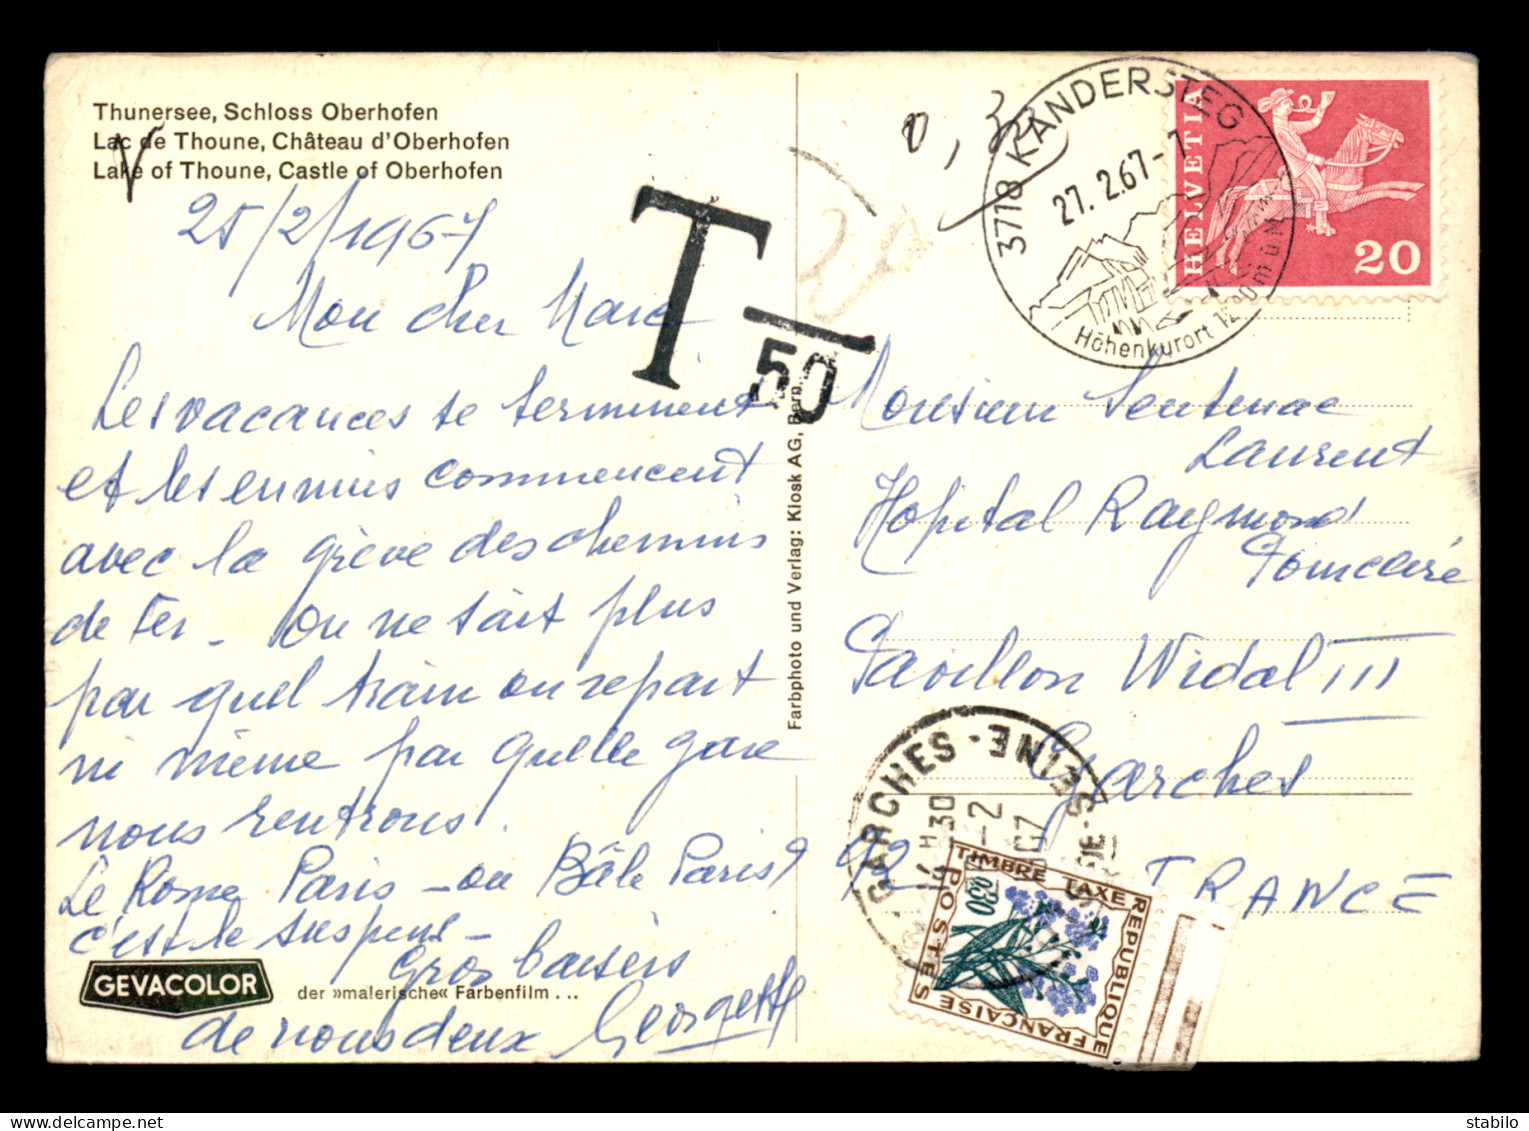 Thunersee, Schloss Oberhofen
Lac de Thoune, Château d'Oberhofen
Lake of Thoune, Castle of Oberhofen
25/2/1967
Mon cher Marc
Les vacances se terminent
et les ennuis commencent
avec la grève des chemins
de fer - on ne sait plus
par quel train on repart
ni même par quelle gare
nous rentrons.
Le Rome Paris - ou Bâle Paris?
c'est le suspens -
Gros baisers
de nous deux Georgette
GEVACOLOR
der »malerische« Farbenfilm ...
Farbphoto und Verlag: Kiosk AG, Bern
T
50
20
0,30
3718 KANDERSTEG
27. 2.67-7
Höhenkurort 1200 m ü M
HELVETIA
20
Monsieur Sentenac
Laurent
Hopital Raymond
Poincaré
Pavillon Widal III
Garches
92
FRANCE
GARCHES - SEINE
30
-2
TIMBRE TAXE
0,30
REPUBLIQUE
FRANÇAISE
POSTES
Stabilo